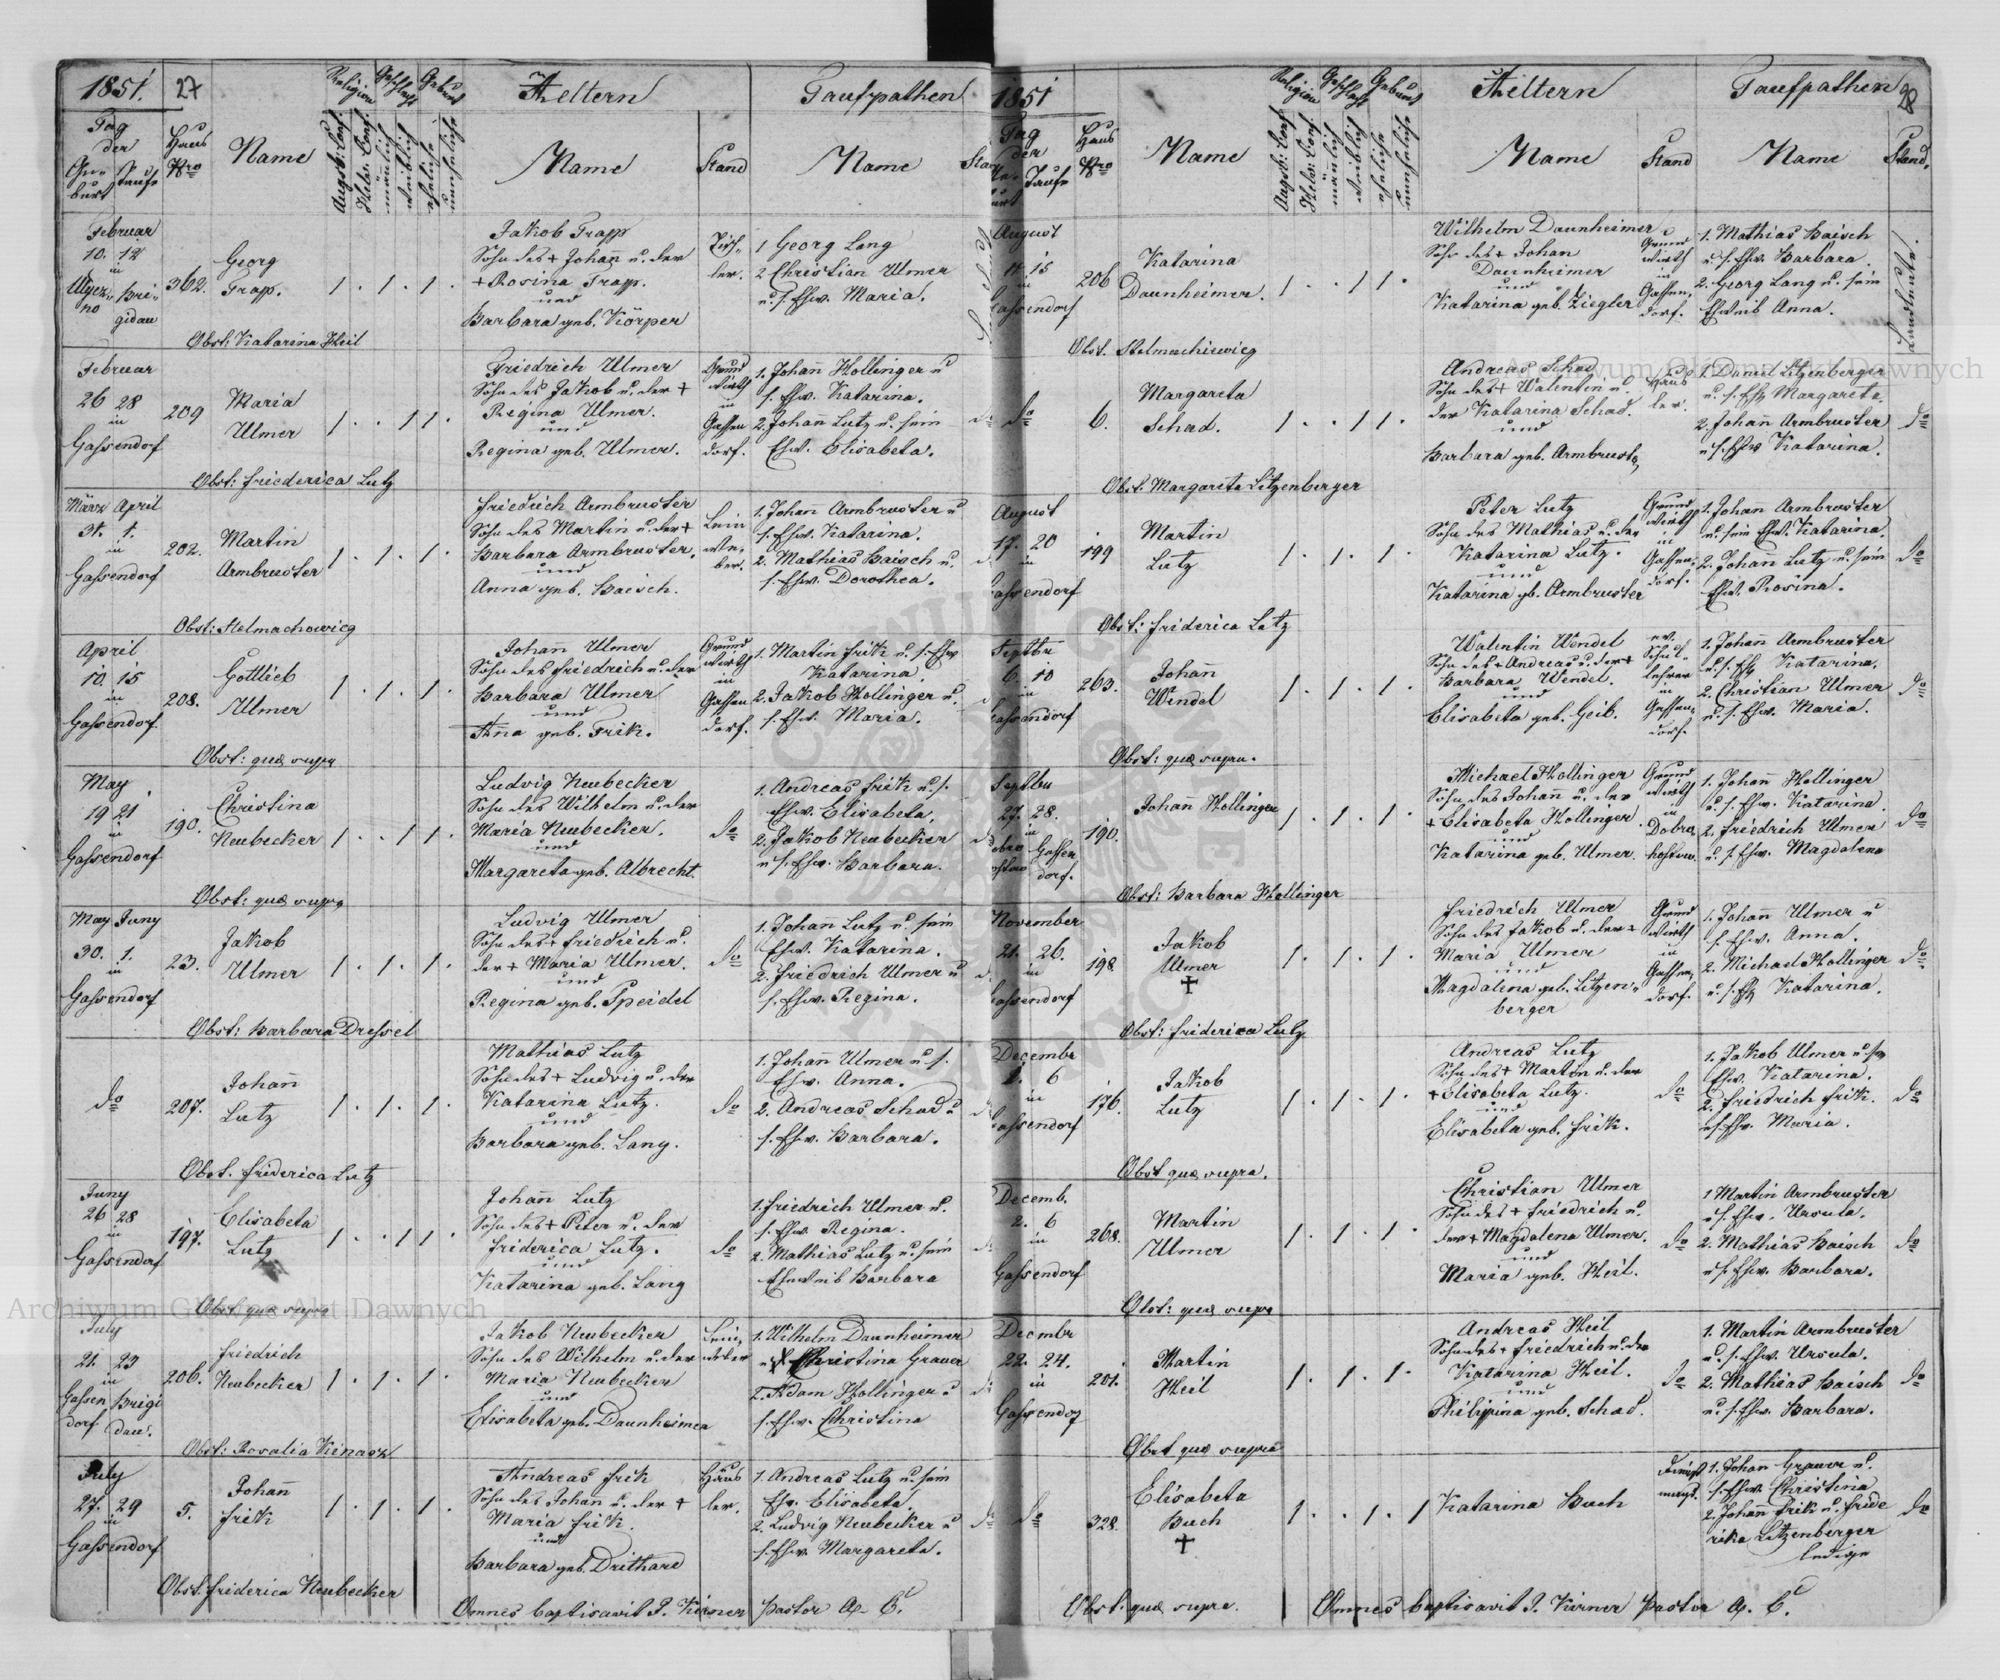 1851.
27
Religion
Geschlecht
Geburt
Aeltern
Taufpathen
Tag
der
Haus
Nro
Name
Geburt
Taufe
Augsb: Conf.
Helv: Conf.
männlich
weiblich
eheliche
uneheliche
Name
Stand
Name
Februar
10. 12
in
Ugerz- Bri-
no gidau
362.
Georg
Trapp.
1 . 1 . 1 .
Jakob Trapp
Sohn des + Johañ u. der
+ Rosina Trapp.
und
Barbara geb. Körper
Tisch-
ler.
1 Georg Lang
2 Christian Ulmer
u. s. Ehw. Maria.
Obst: Katarina Heil
Februar
26 28
in
Gassendorf
209
Maria
Ulmer
1 . . 1 1 .
Friedrich Ulmer
Sohn des Jakob u. der +
Regina Ulmer.
und
Regina geb. Ulmer.
Grund
wirth
in
Gassen
dorf.
1. Johañ Hollinger u
s. Ehw. Katarina.
2. Johañ Lutz u. sein
Ehw. Elisabeta.
Obst: Friederica Lutz
März April
31. 1.
in
Gassendorf
202.
Martin
Armbruster
1 . 1 . 1 .
Friedrich Armbruster
Sohn des Martin u. der +
Barbara Armbruster.
und
Anna geb. Baisch.
Lein
we-
ber.
1. Johan Armbruster u
s. Ehw. Katarina.
2. Mathias Baisch u.
s. Ehw. Dorothea.
Obst: Stelmachowicz
April
10. 15
in
Gassendorf.
208.
Gottlieb
Ulmer
1 . 1 . 1 .
Johañ Ulmer
Sohn des Friedrich u. der
Barbara Ulmer
und
Ana geb. Frik.
Grund
wirth
in
Gassen
dorf.
1. Martin Frik u. s. Ehw
Katarina.
2. Jakob Hollinger u.
s. Ehw. Maria.
Obst: quæ supra
May
19 21
in
Gassendorf
190.
Christina
Neubecker
1 . . 1 1 .
Ludvig Neubecker
Sohn des Wilhelm u. der
Maria Neubecker.
und
Margareta geb. Albrecht.
do
1. Andreas Frik u. s.
Ehw. Elisabeta.
2. Jakob Neubecker
u s. Ehw. Barbara.
Obst: quæ supra
May Juny
30. 1.
in
Gassendorf
23.
Jakob
Ulmer
1 . 1 . 1 .
Ludvig Ulmer
Sohn des + Friedrich u.
der + Maria Ulmer.
und
Regina geb. Speidel
do
1. Johañ Lutz u. sein
Ehw. Katarina.
2. Friedrich Ulmer u
s. Ehw. Regina.
Obst: Barbara Dressel
do
207.
Johañ
Lutz
1 . 1 . 1 .
Mathias Lutz
Sohn des + Ludvig u. der
Katarina Lutz.
und
Barbara geb. Lang.
do
1. Johañ Ulmer u. s.
Ehw. Anna.
2. Andreas Schad u
s. Ehw. Barbara.
Obst. Friderica Lutz
Juny
26 28
in
Gassendorf
197.
Elisabeta
Lutz
1 . . 1 1 .
Johañ Lutz
Sohn des + Peter u. der
Friderica Lutz.
und
Katarina geb. Lang
do
1. Friedrich Ulmer u.
s. Ehw. Regina.
2. Mathias Lutz u. sein
Eheweib Barbara
Obst quæ supra
July
21. 23
in
Gassen Brigi
dorf dau.
206.
Friedrich
Neubecker
1 . 1 . 1 .
Jakob Neubecker
Sohn des Wilhelm u. der
Maria Neubecker
und
Elisabeta geb. Daunheimer
Lein
weber
1. Wilhelm Daunheimer
u Christina Grauer
2. Adam Hollinger u
s. Ehw. Christina
Obst: Rosalia Kinasz
July
27. 29
in
Gassendorf
5.
Johañ
Frik
1 . 1 . 1 .
Andreas Frik
Sohn des Johan u. der +
Maria Frik.
und
Barbara geb. Drithard
Häus
ler.
1. Andreas Lutz u. sein
Ehw. Elisabeta.
2. Ludvig Neubecker u
s. Ehw. Margareta.
Obst. Friderica Neubecker
Omnes baptisavit J. Kirner Pastor A. C.
1851
28
Religion
Geschlecht
Geburt
Aeltern
Taufpathen
Tag
der
Taufe
Haus
Nro
Name
Augsb: Conf.
Helv: Conf.
männlich
weiblich
eheliche
uneheliche
Name
Stand
Name
Stand.
August
11. 15
in
Gassendorf
206
Katarina
Daunheimer.
1 . . 1 1 .
Wilhelm Daunheimer
Sohn des + Johan
Daunheimer
und
Katarina geb. Ziegler
Grund
wirth
in
Gassen-
dorf.
1. Mathias Baisch
u s. Ehw. Barbara.
2. Georg Lang u. sein
Eheweib Anna.
Landleute.
Obst. Stelmachiewicz
do
6.
Margareta
Schad.
1 . . 1 1 .
Andreas Schad
Sohn des + Walentin u
der Katarina Schad.
und
Barbara geb. Armbruster
Häus
ler.
1. Daniel Litzenberger
u. s. Ehw Margareta.
2. Johañ Armbruster
u s. Ehw Katarina.
do
Obst: Margareta Litzenberger
August
17. 20
in
Gassendorf
199
Martin
Lutz
1 . 1 . 1 .
Peter Lutz
Sohn des Mathias u. der
Katarina Lutz.
und
Katarina gb. Armbruster
Grund
wirth
in
Gassen-
dorf.
1. Johañ Armbruster
u. sein Ehw. Katarina.
2. Johañ Lutz u. sein
Ehw. Rosina.
do
Obst: Friderica Lutz
Septbr
6. 10
in
Gassendorf
263.
Johañ
Wendel
1 . 1 . 1 .
Walentin Wendel
Sohn des + Andreas u. der +
Barbara Wendel.
und
Elisabeta geb. Geib.
ev.
Schul-
lehrer
in
Gassen-
dorf
1. Johañ Armbruster
u. s. Ehw Katarina.
2. Christian Ulmer
u. s. Ehw. Maria.
do
Obst: quæ supra.
Septbr
27. 28.
in
Gassen
dorf.
190.
Johañ Hollinger
1 . 1 . 1 .
Michael Hollinger
Sohn des Johañ u. der
+ Elisabeta Hollinger.
und
Katarina geb. Ulmer.
Grund
wirth
in
Dobro
hostow.
1. Johañ Hollinger
u. s. Ehw. Katarina
2. Friedrich Ulmer
u. s. Ehw. Magdalena
do
Obst: Barbara Hollinger
November
21. 26.
in
Gassendorf
198
Jakob
Ulmer
+
1 . 1 . 1 .
Friedrich Ulmer
Sohn des Jakob u. der +
Maria Ulmer
und
Magdalena geb. Litzen-
berger
Grund
wirth
in
Gassen-
dorf.
1. Johañ Ulmer u
s. Ehw. Anna.
2. Michael Hollinger
u. s. Ehw Katarina.
do
Obst: Friderica Lutz
Decembr
1. 6
in
Gassendorf
176.
Jakob
Lutz
1 . 1 . 1 .
Andreas Lutz
Sohn des + Martin u. der
+ Elisabeta Lutz.
und
Elisabeta geb. Frik.
do
1. Jakob Ulmer u. sein
Ehw. Katarina.
2. Friedrich Frik.
u s. Ehw. Maria.
do
Obst quæ supra.
Decemb.
2. 6
in
Gassendorf
268.
Martin
Ulmer
1 . 1 . 1 .
Christian Ulmer
Sohn des + Friedrich u.
der + Magdalena Ulmer.
und
Maria geb. Heil.
do
1 Martin Armbruster
u s. Ehw. Ursula.
2. Mathias Baisch
u s. Ehw. Barbara.
do
Obst: quæ supra
Decembr
22. 24.
in
Gassendorf
201.
Martin
Heil
1 . 1 . 1 .
Andreas Heil
Sohn des + Friedrich u. der
Katarina Heil.
und
Philippina geb. Schad.
do
1. Martin Armbruster
u. s. Ehw. Ursula.
2. Mathias Baisch
u. s. Ehw. Barbara.
do
Obst quæ supra
do
328.
Elisabeta
Buch
+
1 . . 1 . 1
Katarina Buch
Dienst
magd.
1. Johan Grauer u.
s. Ehw. Christina
2. Johañ Frik u. Fride
rika Litzenberger
ledige
do
Obst: quæ supra.
Omnes baptisavit J. Kirner Pastor A. C.
Archiwum Główne Akt Dawnych
Archiwum Główne Akt Dawnych